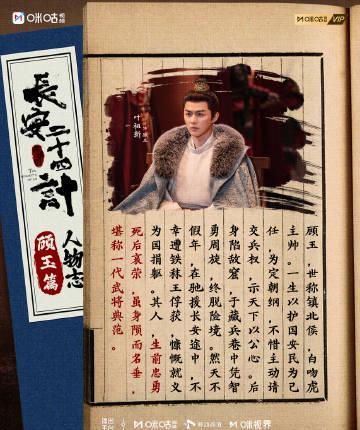 咪咕视频
咪咕视频 VIP
長安二十四計
人物志
顾玉篇
叶祖新
顾玉，世称镇北侯，白吻虎
主帅。一生以护国安民为己
任，为定朝纲，不惜主动请
交兵权，示天下以公心。后
身陷敌窟，于藏兵巷中凭智
勇周旋，终脱险境。然天不
假年，在驰援长安途中，不
幸遭铁秣王俘获，慷慨就义
为国捐躯。其人 生前忠勇
死后哀荣，虽身陨而名垂，
堪称一代武将典范。
咪咕视频
咪咕视界